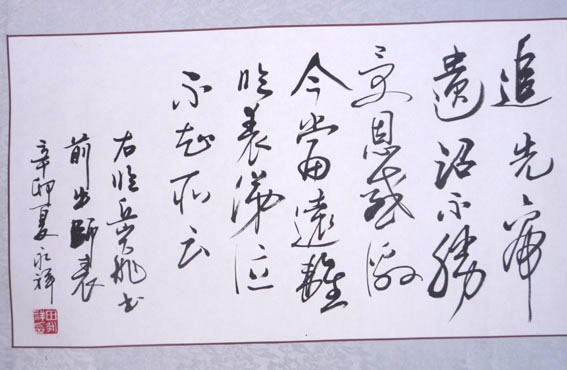 追先帝
遺詔不勝
受恩感激
今當遠離
臨表涕泣
不知所云
右臨岳飛書
前出師表
辛卯夏永祥